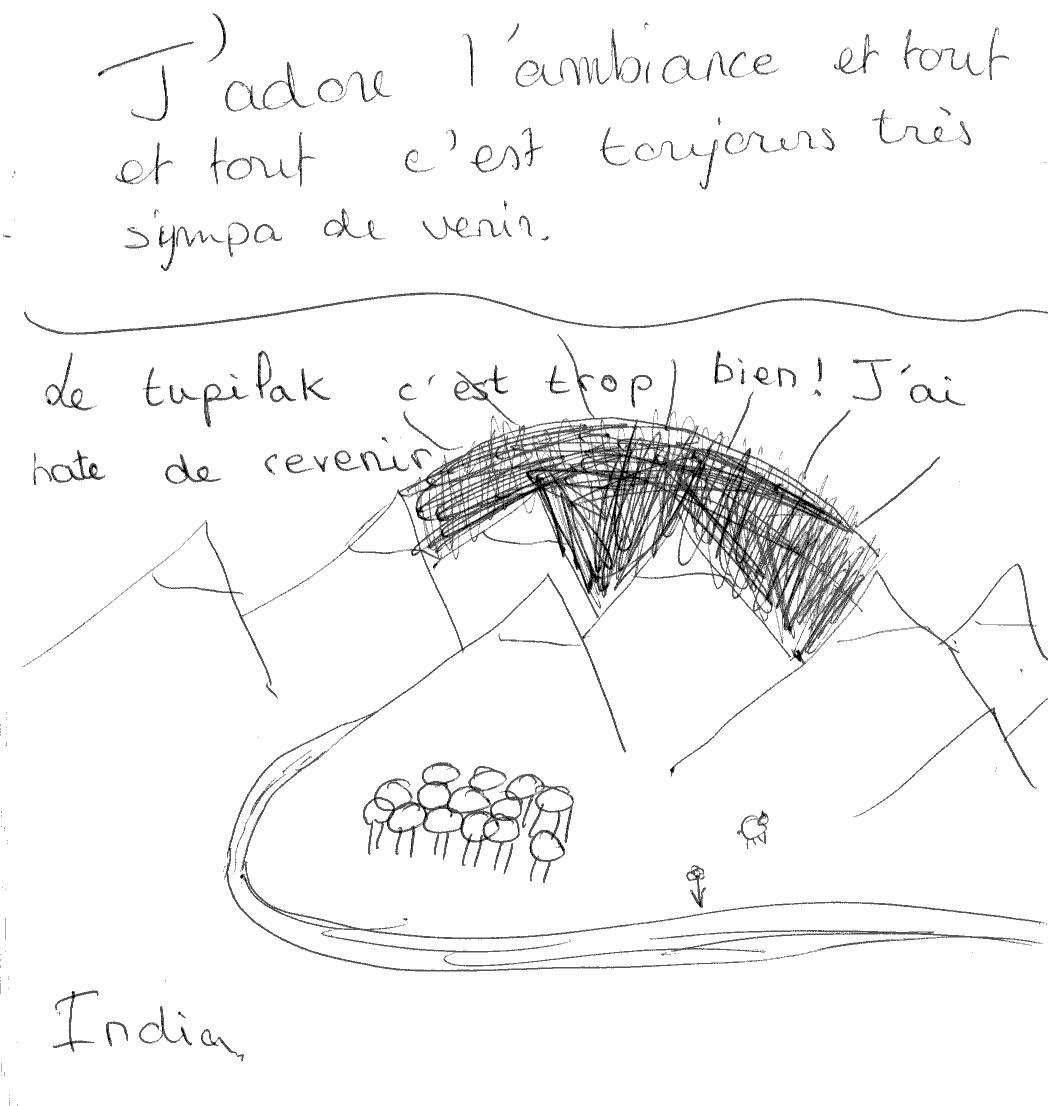 J'adore l'ambiance et tout
et tout c'est toujours très
sympa de venir.
Le tupilak c'est trop bien! J'ai
hate de revenir
India